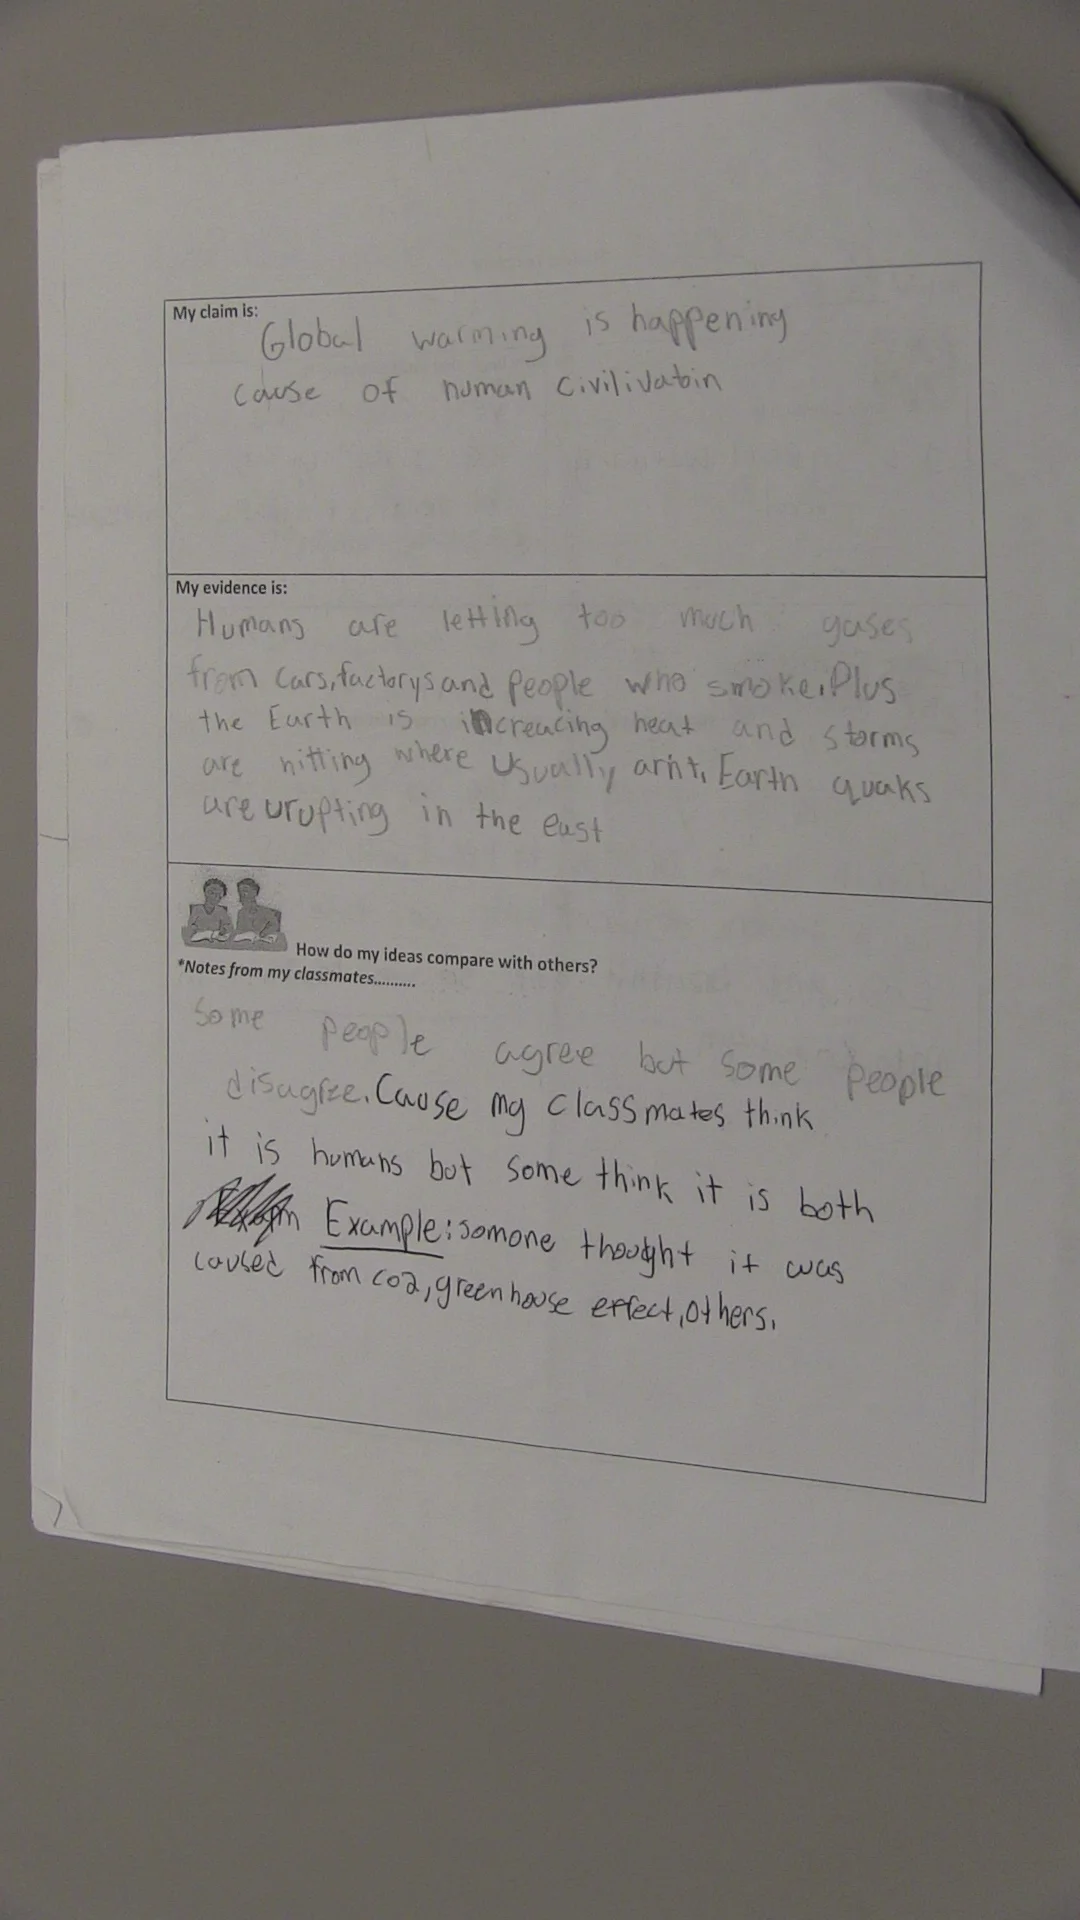 My claim is:
Global warming is happening
cause of human civilivatin
My evidence is:
Humans are letting too much gases
from cars, factorys and people who smoke. Plus
the Earth is increacing heat and storms
are hitting where usually arn't. Earth quaks
are urupting in the east
How do my ideas compare with others?
*Notes from my classmates..........
Some people agree but some people
disagree. Cause my classmates think
it is humans but some think it is both
Example: somone thought it was
caused from co2, greenhouse effect, others.